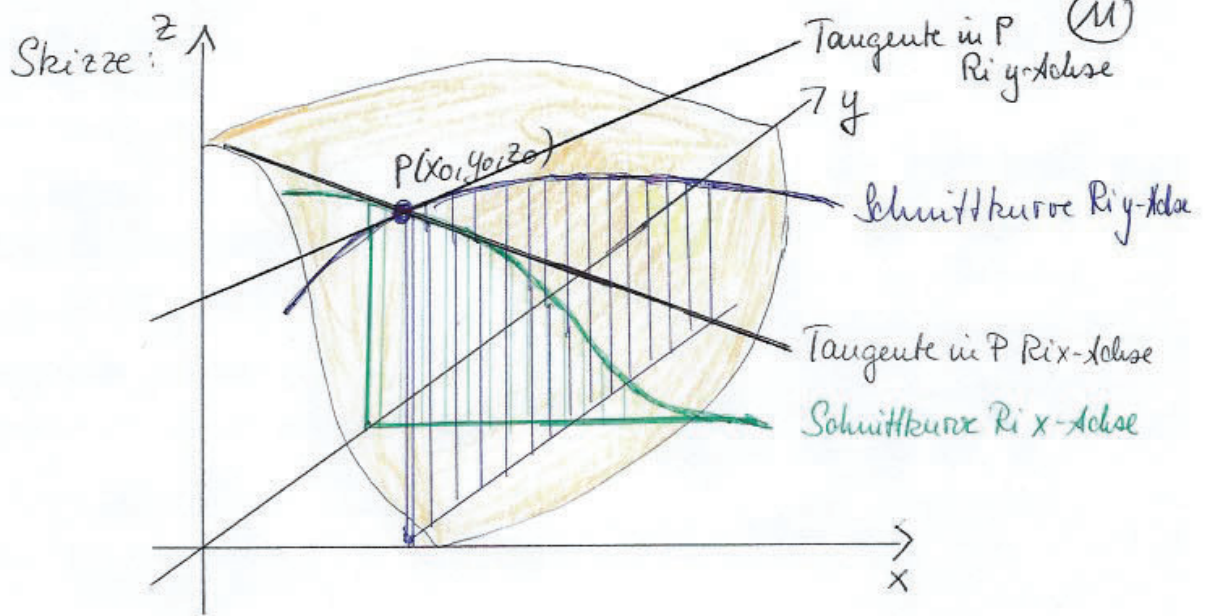 Skizze:
z
Tangente in P
Ri y-Achse
11
y
P(x0, y0, z0)
Schnittkurve Ri y-Achse
Tangente in P Ri x-Achse
Schnittkurve Ri x-Achse
x